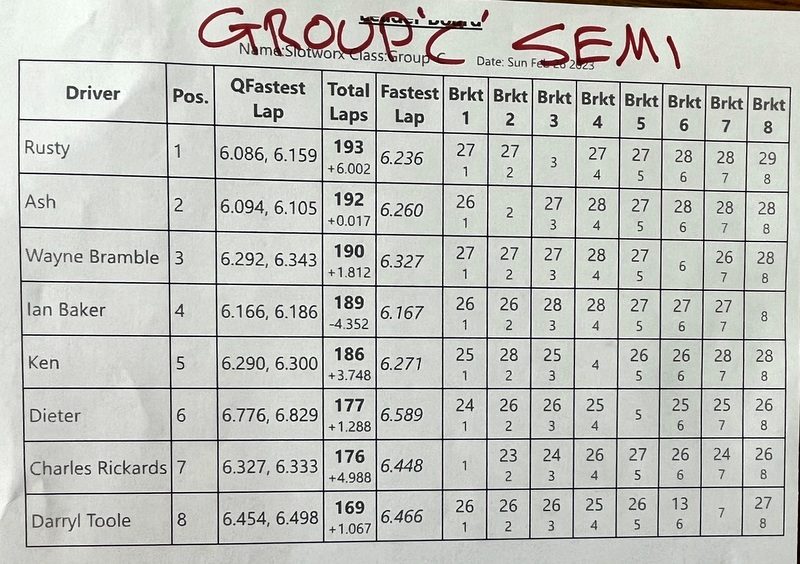 Leader Board
GROUP 'C' SEMI
Name:Slotworx Class:Group C Date: Sun Feb 26 2023
Driver Pos. QFastest Lap Total Laps Fastest Lap Brkt 1 Brkt 2 Brkt 3 Brkt 4 Brkt 5 Brkt 6 Brkt 7 Brkt 8
Rusty 1 6.086, 6.159 193 6.236 27 27 27 27 28 28 29
+6.002 1 2 3 4 5 6 7 8
Ash 2 6.094, 6.105 192 6.260 26 27 28 27 28 28 28
+0.017 1 2 3 4 5 6 7 8
Wayne Bramble 3 6.292, 6.343 190 6.327 27 27 27 28 27 26 28
+1.812 1 2 3 4 5 6 7 8
Ian Baker 4 6.166, 6.186 189 6.167 26 26 28 28 27 27 27
-4.352 1 2 3 4 5 6 7 8
Ken 5 6.290, 6.300 186 6.271 25 28 25 26 26 28 28
+3.748 1 2 3 4 5 6 7 8
Dieter 6 6.776, 6.829 177 6.589 24 26 26 25 25 25 26
+1.288 1 2 3 4 5 6 7 8
Charles Rickards 7 6.327, 6.333 176 6.448 23 24 26 27 26 24 26
+4.988 1 2 3 4 5 6 7 8
Darryl Toole 8 6.454, 6.498 169 6.466 26 26 26 25 26 13 27
+1.067 1 2 3 4 5 6 7 8